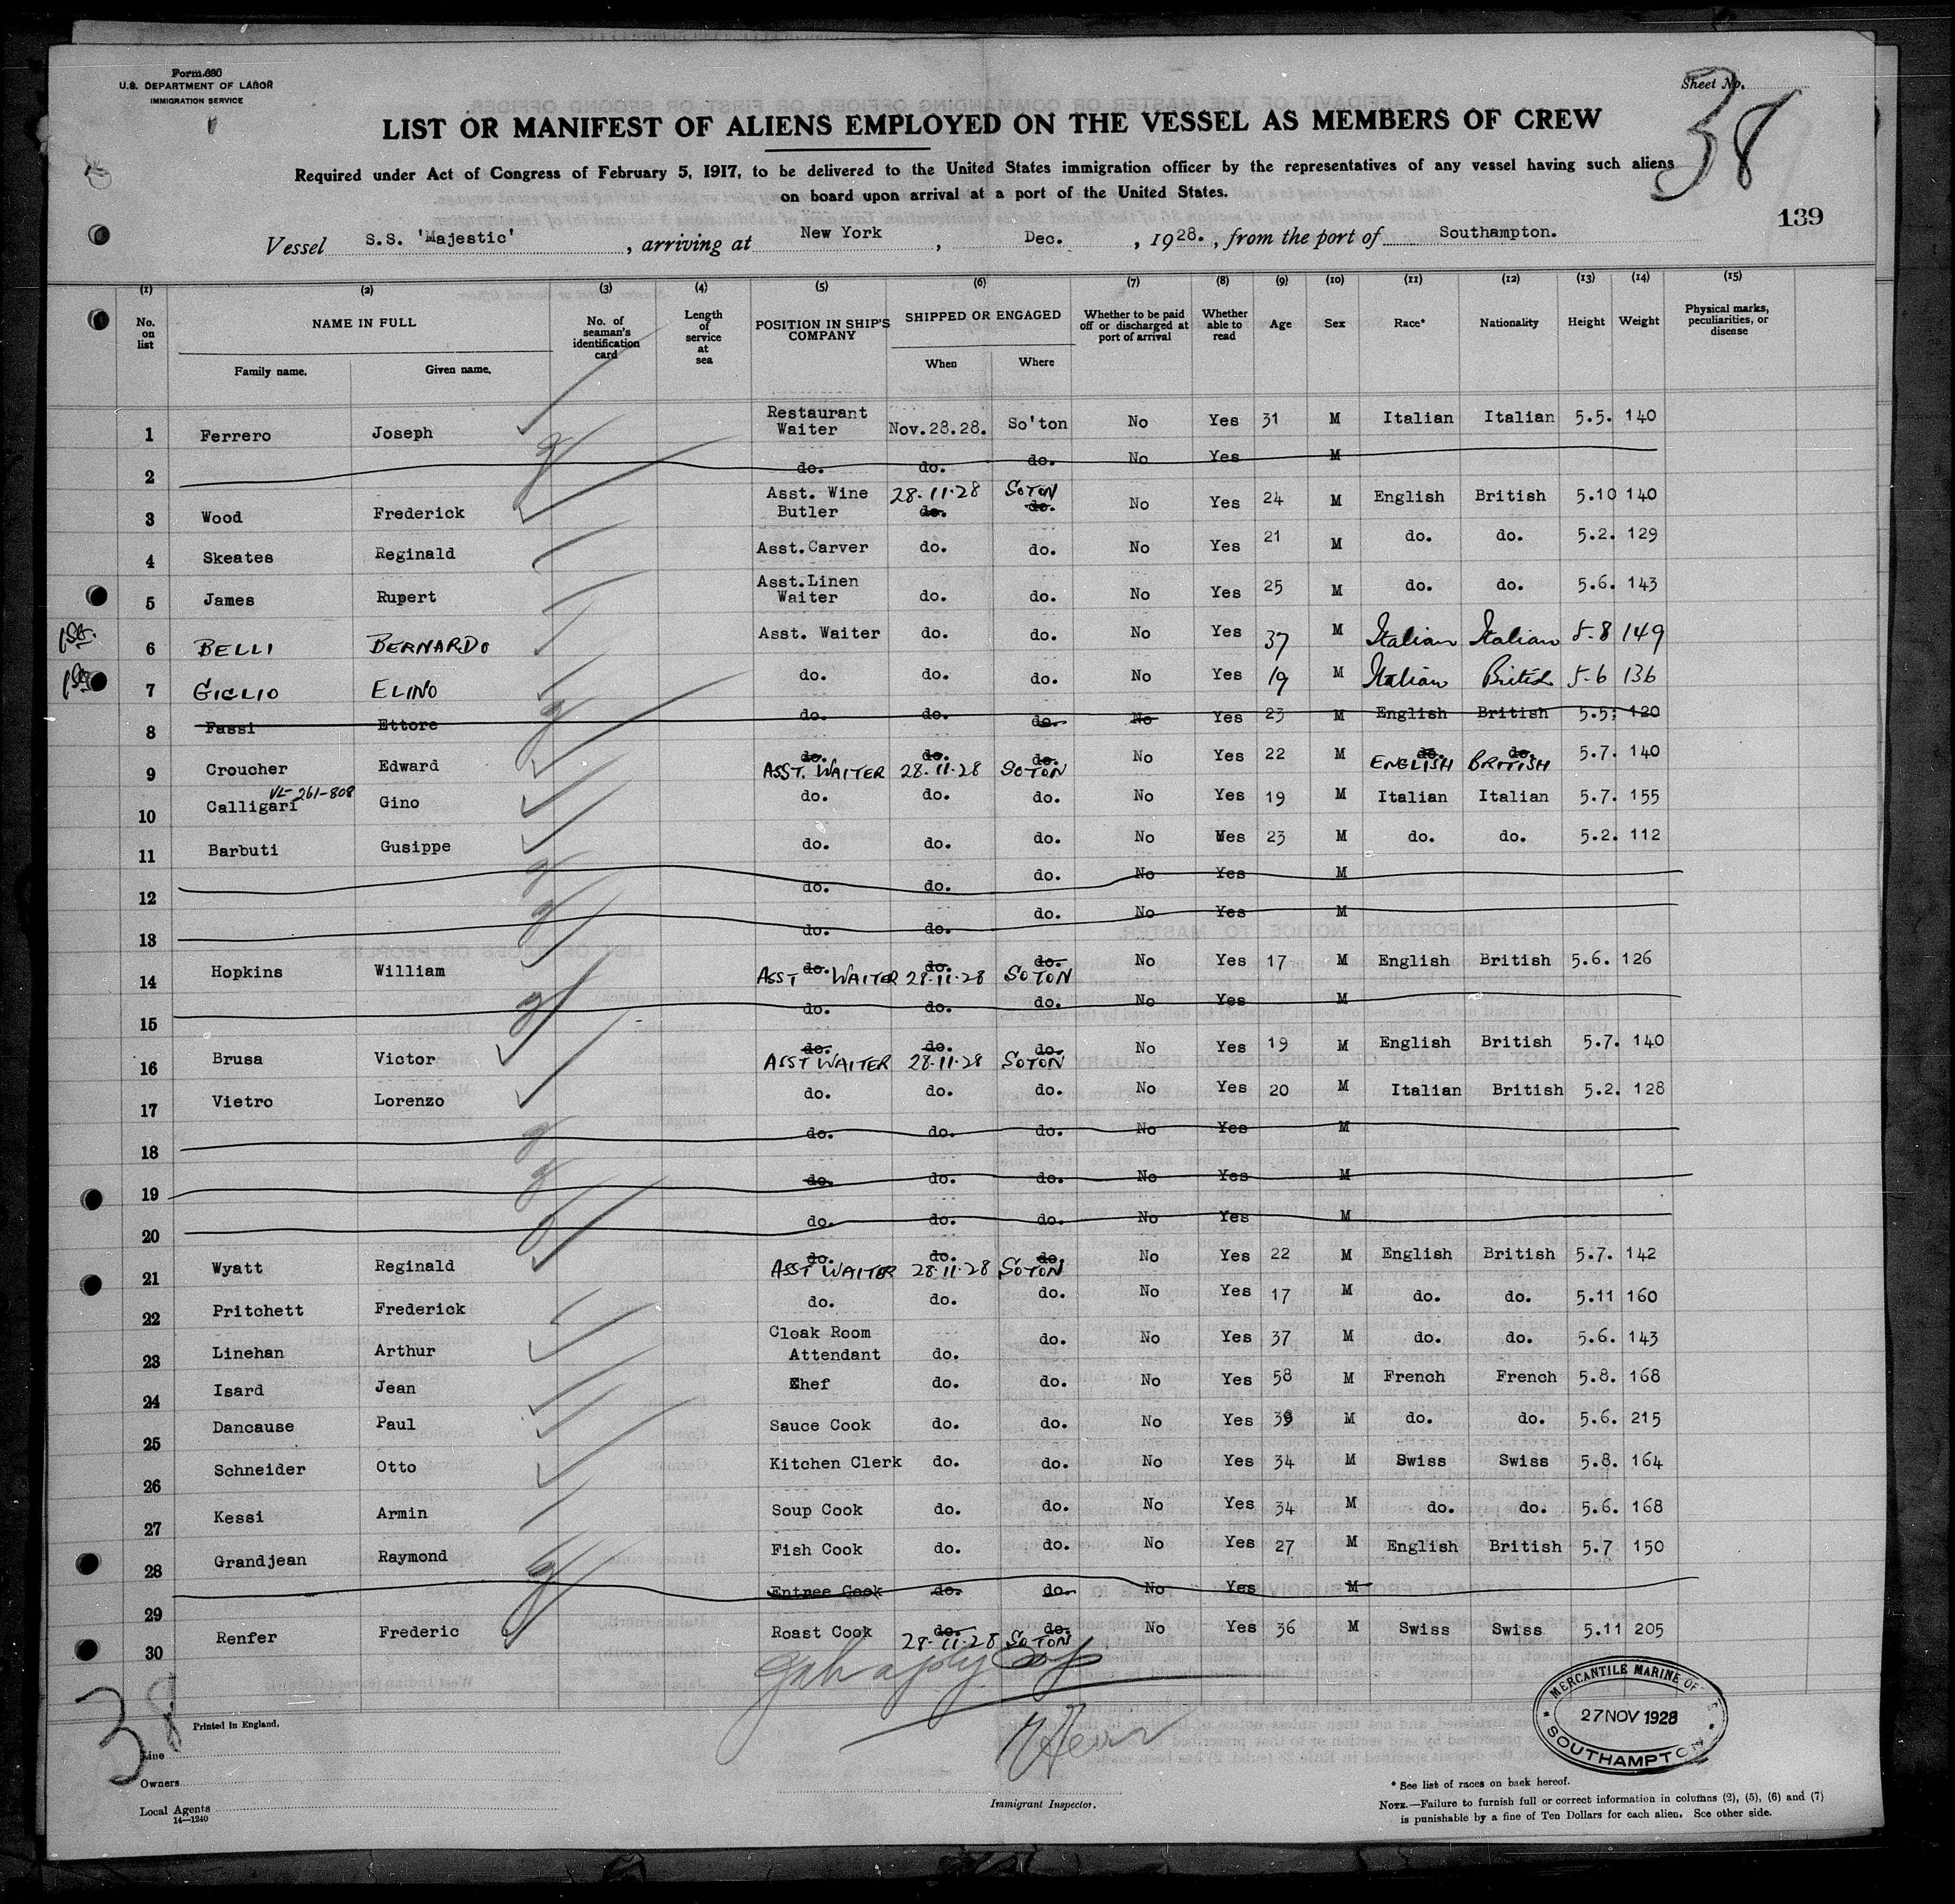 Form 680
U.S. DEPARTMENT OF LABOR
IMMIGRATION SERVICE
Sheet No.
38
LIST OR MANIFEST OF ALIENS EMPLOYED ON THE VESSEL AS MEMBERS OF CREW
Required under Act of Congress of February 5, 1917, to be delivered to the United States immigration officer by the representatives of any vessel having such aliens
on board upon arrival at a port of the United States.
139
Vessel S.S. 'Majestic', arriving at New York, Dec., 1928., from the port of Southampton.
(1) (2) (3) (4) (5) (6) (7) (8) (9) (10) (11) (12) (13) (14) (15)
No. on list NAME IN FULL No. of seaman's identification card Length of service at sea POSITION IN SHIP'S COMPANY SHIPPED OR ENGAGED Whether to be paid off or discharged at port of arrival Whether able to read Age Sex Race* Nationality Height Weight Physical marks, peculiarities, or disease
Family name. Given name. When Where
1 Ferrero Joseph Restaurant Waiter Nov.28.28. So'ton No Yes 31 M Italian Italian 5.5. 140
2 do. do. do. No Yes M
3 Wood Frederick Asst. Wine Butler 28.11.28 SOTON do. do. No Yes 24 M English British 5.10 140
4 Skeates Reginald Asst.Carver do. do. No Yes 21 M do. do. 5.2. 129
5 James Rupert Asst.Linen Waiter do. do. No Yes 25 M do. do. 5.6. 143
1st. 6 BELLI BERNARDO Asst. Waiter do. do. No Yes 37 M Italian Italian 5-8 149
1st 7 GIGLIO ELINO do. do. do. No Yes 19 M Italian British 5-6 136
8 Fassi Ettore do. do. do. No Yes 23 M English British 5.5. 120
9 Croucher Edward do. do. do. No Yes 22 M do. do. 5.7. 140
ASST. WAITER 28.11.28 SOTON ENGLISH BRITISH
VL-261-808
10 Calligari Gino do. do. do. No Yes 19 M Italian Italian 5.7. 155
11 Barbuti Gusippe do. do. do. No Wes 23 M do. do. 5.2. 112
12 do. do. do. No Yes M
13 do. do. do. No Yes M
14 Hopkins William do. do. do. No Yes 17 M English British 5.6. 126
ASST WAITER 28.11.28 SOTON
15 do. do. do. No Yes M
16 Brusa Victor do. do. do. No Yes 19 M English British 5.7. 140
ASST WAITER 28.11.28 SOTON
17 Vietro Lorenzo do. do. do. No Yes 20 M Italian British 5.2. 128
18 do. do. do. No Yes M
19 do. do. do. No Yes M
20 do. do. do. No Yes M
21 Wyatt Reginald do. do. do. No Yes 22 M English British 5.7. 142
ASST WAITER 28.11.28 SOTON
22 Pritchett Frederick do. do. do. No Yes 17 M do. do. 5.11 160
23 Linehan Arthur Cloak Room Attendant do. do. No Yes 37 M do. do. 5.6. 143
24 Isard Jean Chef do. do. No Yes 58 M French French 5.8. 168
25 Dancause Paul Sauce Cook do. do. No Yes 39 M do. do. 5.6. 215
26 Schneider Otto Kitchen Clerk do. do. No Yes 34 M Swiss Swiss 5.8. 164
27 Kessi Armin Soup Cook do. do. No Yes 34 M do. do. 5.6. 168
28 Grandjean Raymond Fish Cook do. do. No Yes 27 M English British 5.7 150
29 Entree Cook do. do. No Yes M
30 Renfer Frederic Roast Cook do. do. No Yes 36 M Swiss Swiss 5.11 205
28.11.28 SOTON
38
Printed in England.
Line
Owners
Local Agents
14—1240
Immigrant Inspector.
MERCANTILE MARINE OFFICE
27 NOV 1928
SOUTHAMPTON
* See list of races on back hereof.
NOTE.—Failure to furnish full or correct information in columns (2), (5), (6) and (7)
is punishable by a fine of Ten Dollars for each alien. See other side.